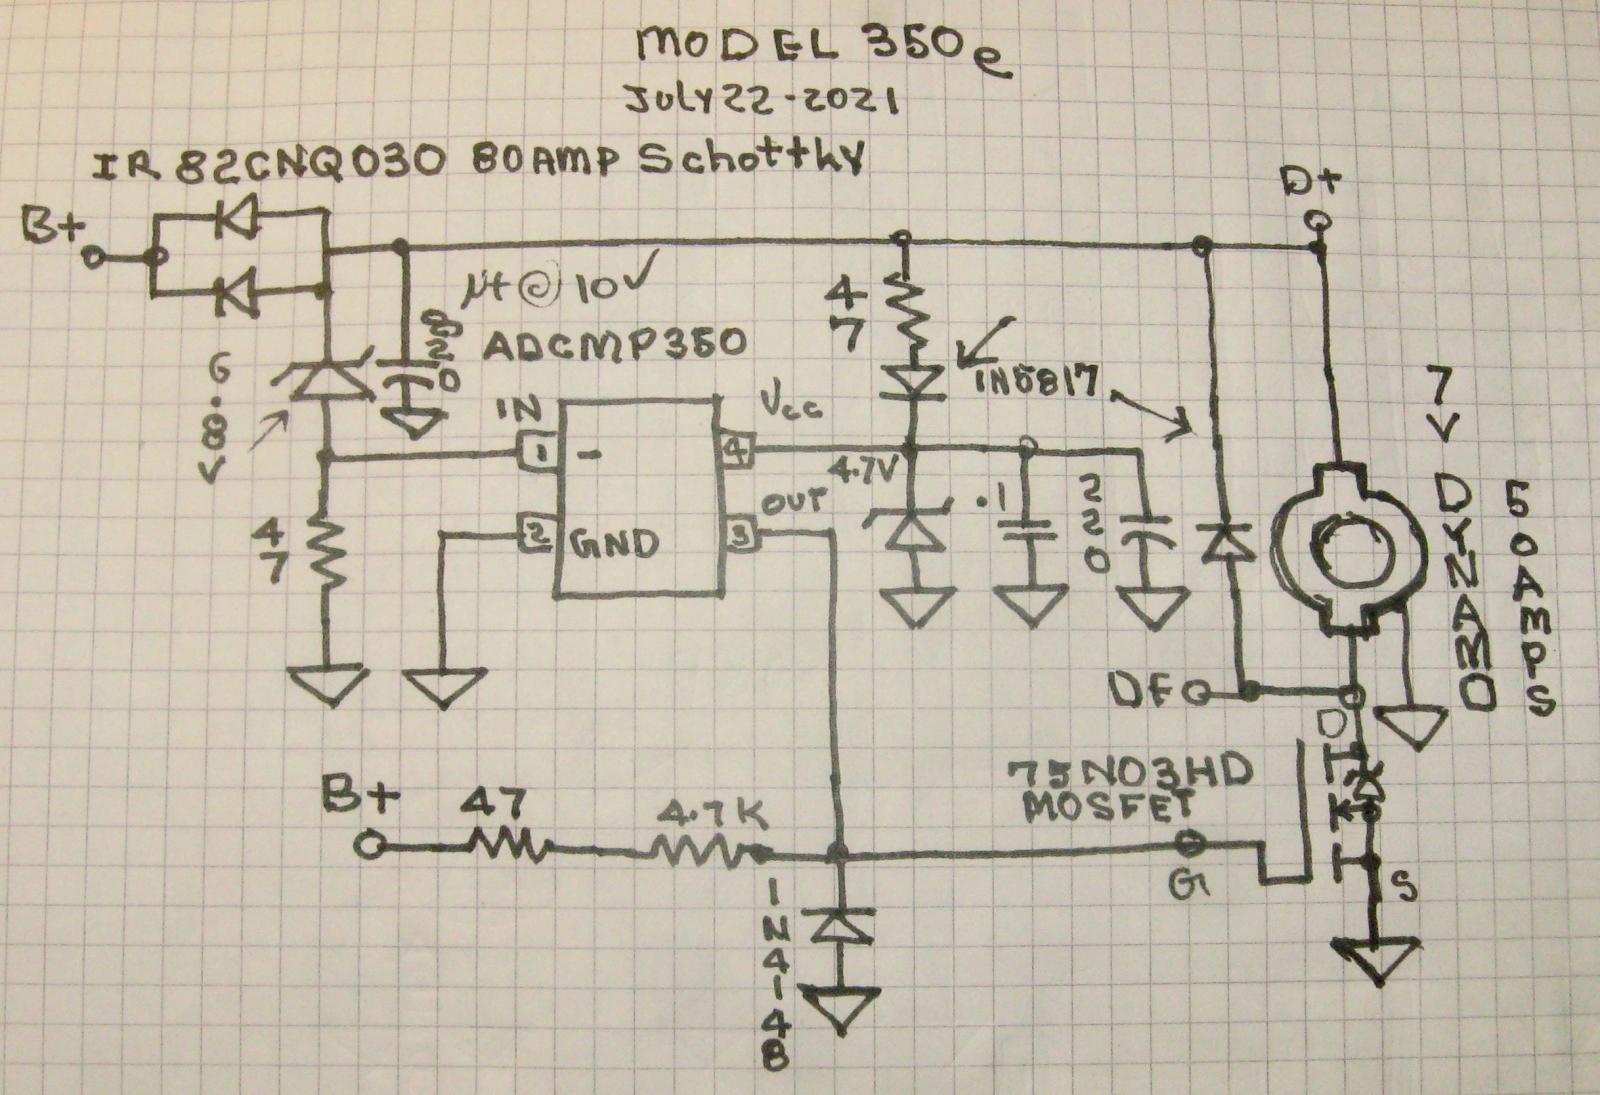 MODEL 350e
JULY 22-2021
IR 82CNQ030 80AMP Schottky
D+
B+
µf @ 10V
820
47
ADCMP350
1N5817
6.8V
IN
Vcc
7V DYNAMO
50AMPS
1
-
4
4.7V
OUT
.1
220
47
2
GND
3
DF
D
75N03HD
MOSFET
B+
47
4.7K
G
S
1N4148